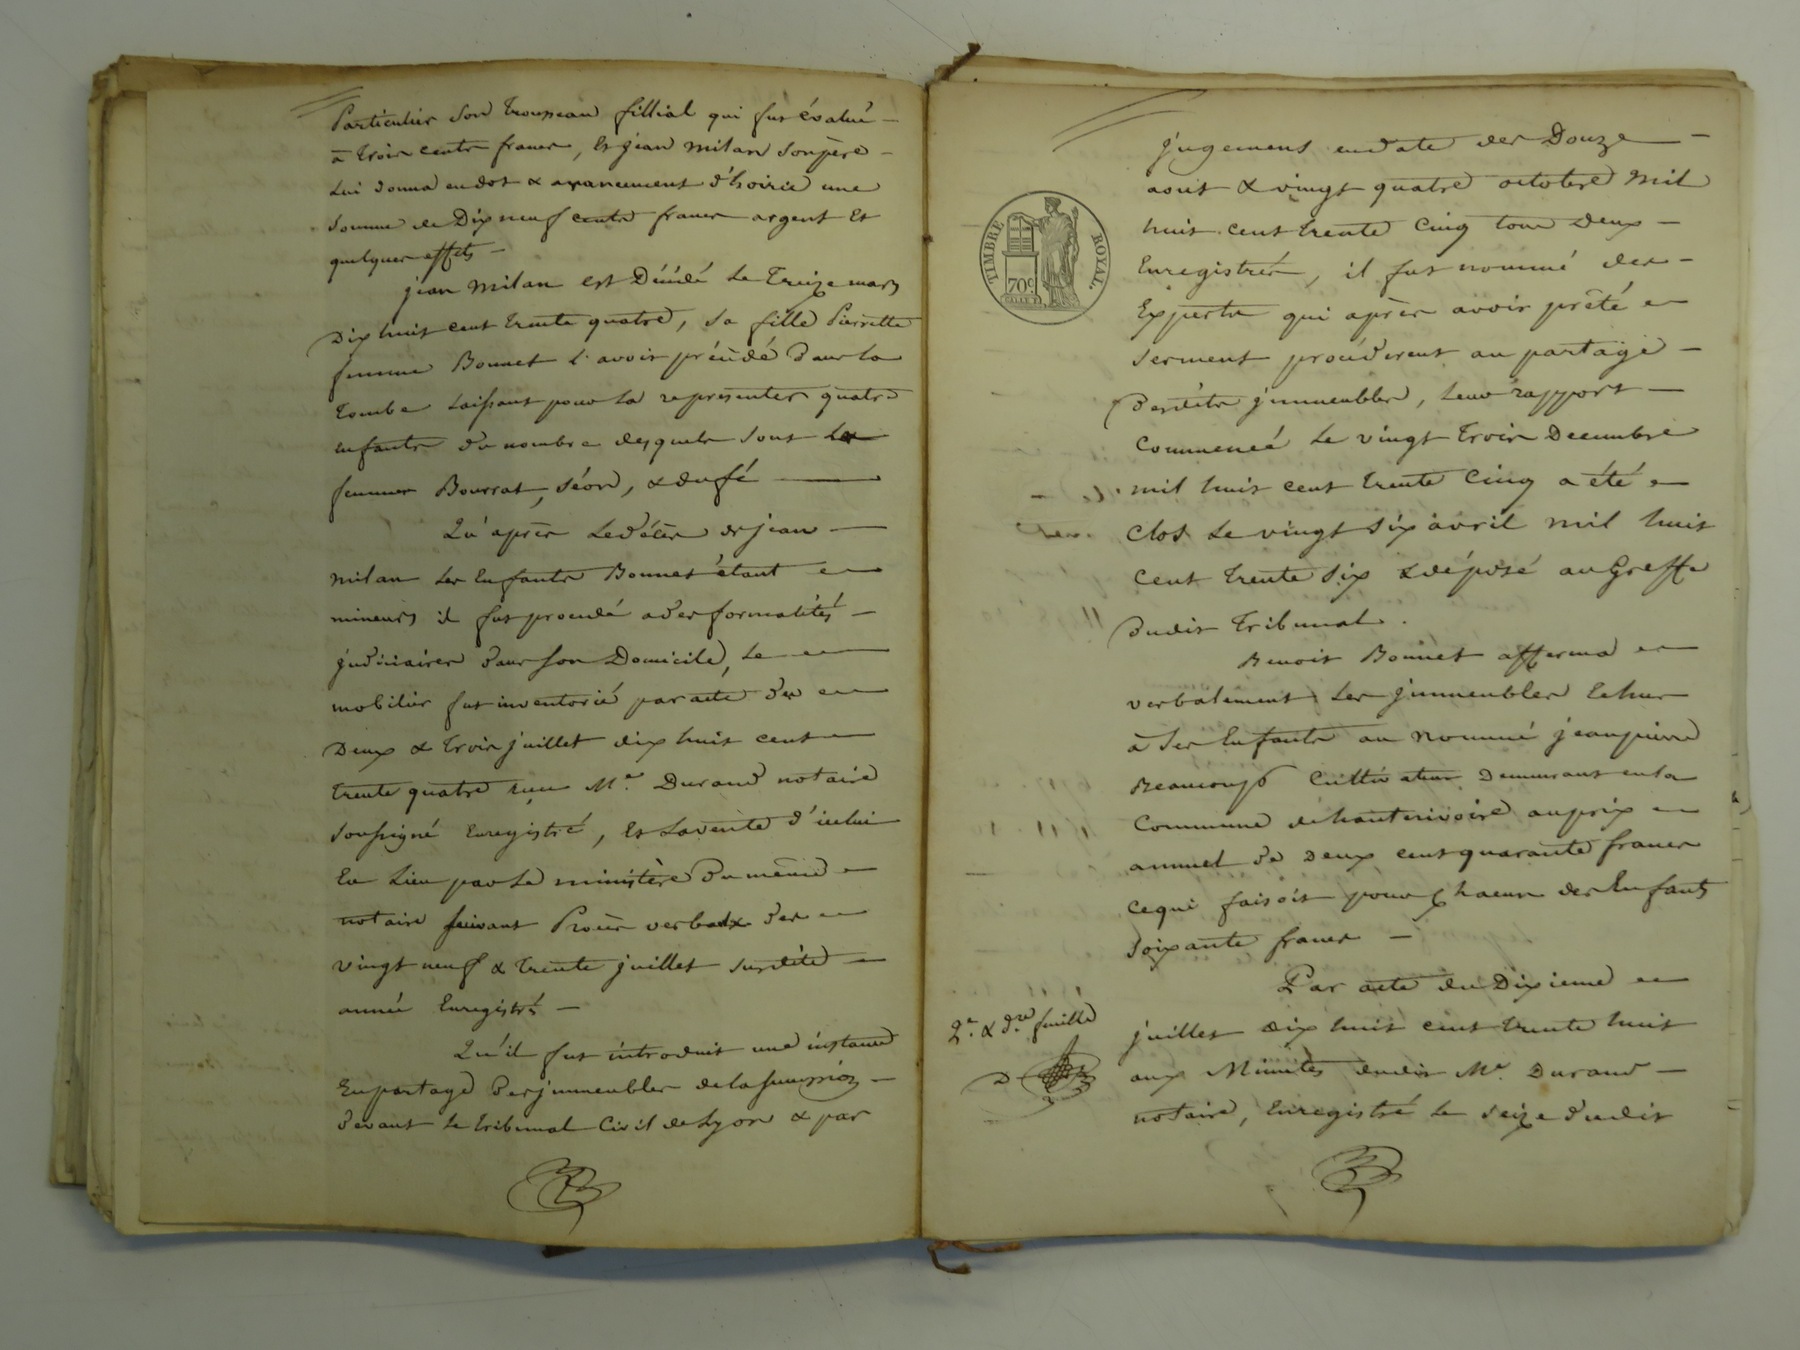 Particulier son trousseau fillial qui fut évalué
à trois cents francs, Et jean Milan son père
lui donna en dot & avancement d'hoirie une
somme de Dix neuf cents francs argent Et
quelques effets
jean Milan est Décédé le Treize mars
Dix huit cent trente quatre, sa fille Pierrette
femme Bonnet l'avoit précédé dans la
tombe laissant pour la représenter quatre
enfants du nombre desquels sont les
femmes Bourrat, Séon, & dufé
Qu'après le décès de jean
milan les Enfants Bonnet étant
mineurs il fut procédé a des formalités
judiciaires dans son Domicile, le
mobilier fut inventorié par acte des
Deux & trois juillet dix huit cent
trente quatre reçu Me. Durand notaire
soussigné Enregistré, Et la vente d'icelui
Eu lieu par le ministère du même
notaire suivant Procès verbaux des
vingt neuf & trente juillet susdite
année Enregistrés
Qu'il fut introduit une instance
En partage des jmmeubles de la succession
devant le tribunal Civil de Lyon & par
jugement en date des Douze
août & vingt quatre octobre Mil
huit cent trente Cinq tous deux
Enregistrés, il fut nommé des
TIMBRE ROYAL.
70c.
Experts qui après avoir prêté
serment procédèrent au partage
Desdits jmmeubles, leur rapport
Commencé le vingt trois Decembre
mil huit cent trente Cinq a été
Clos le vingt six avril mil huit
Cent trente six & déposé au Greffe
dudit Tribunal.
Benoit Bonnet afferma
verbalement les jmmeubles Echus
à ses Enfants au nommé jean pierre
Beaucoup Cultivateur Demeurant en la
Commune de hauterivoire au prix
annuel de Deux cent quarante francs
ce qui faisoit pour Chacun des Enfants
soixante francs
Par acte du Dixieme
juillet dix huit cent trente huit
aux Minutes dudit Me. Durand
notaire, Enregistré le seize dudit
2e. & dre. feuille
D